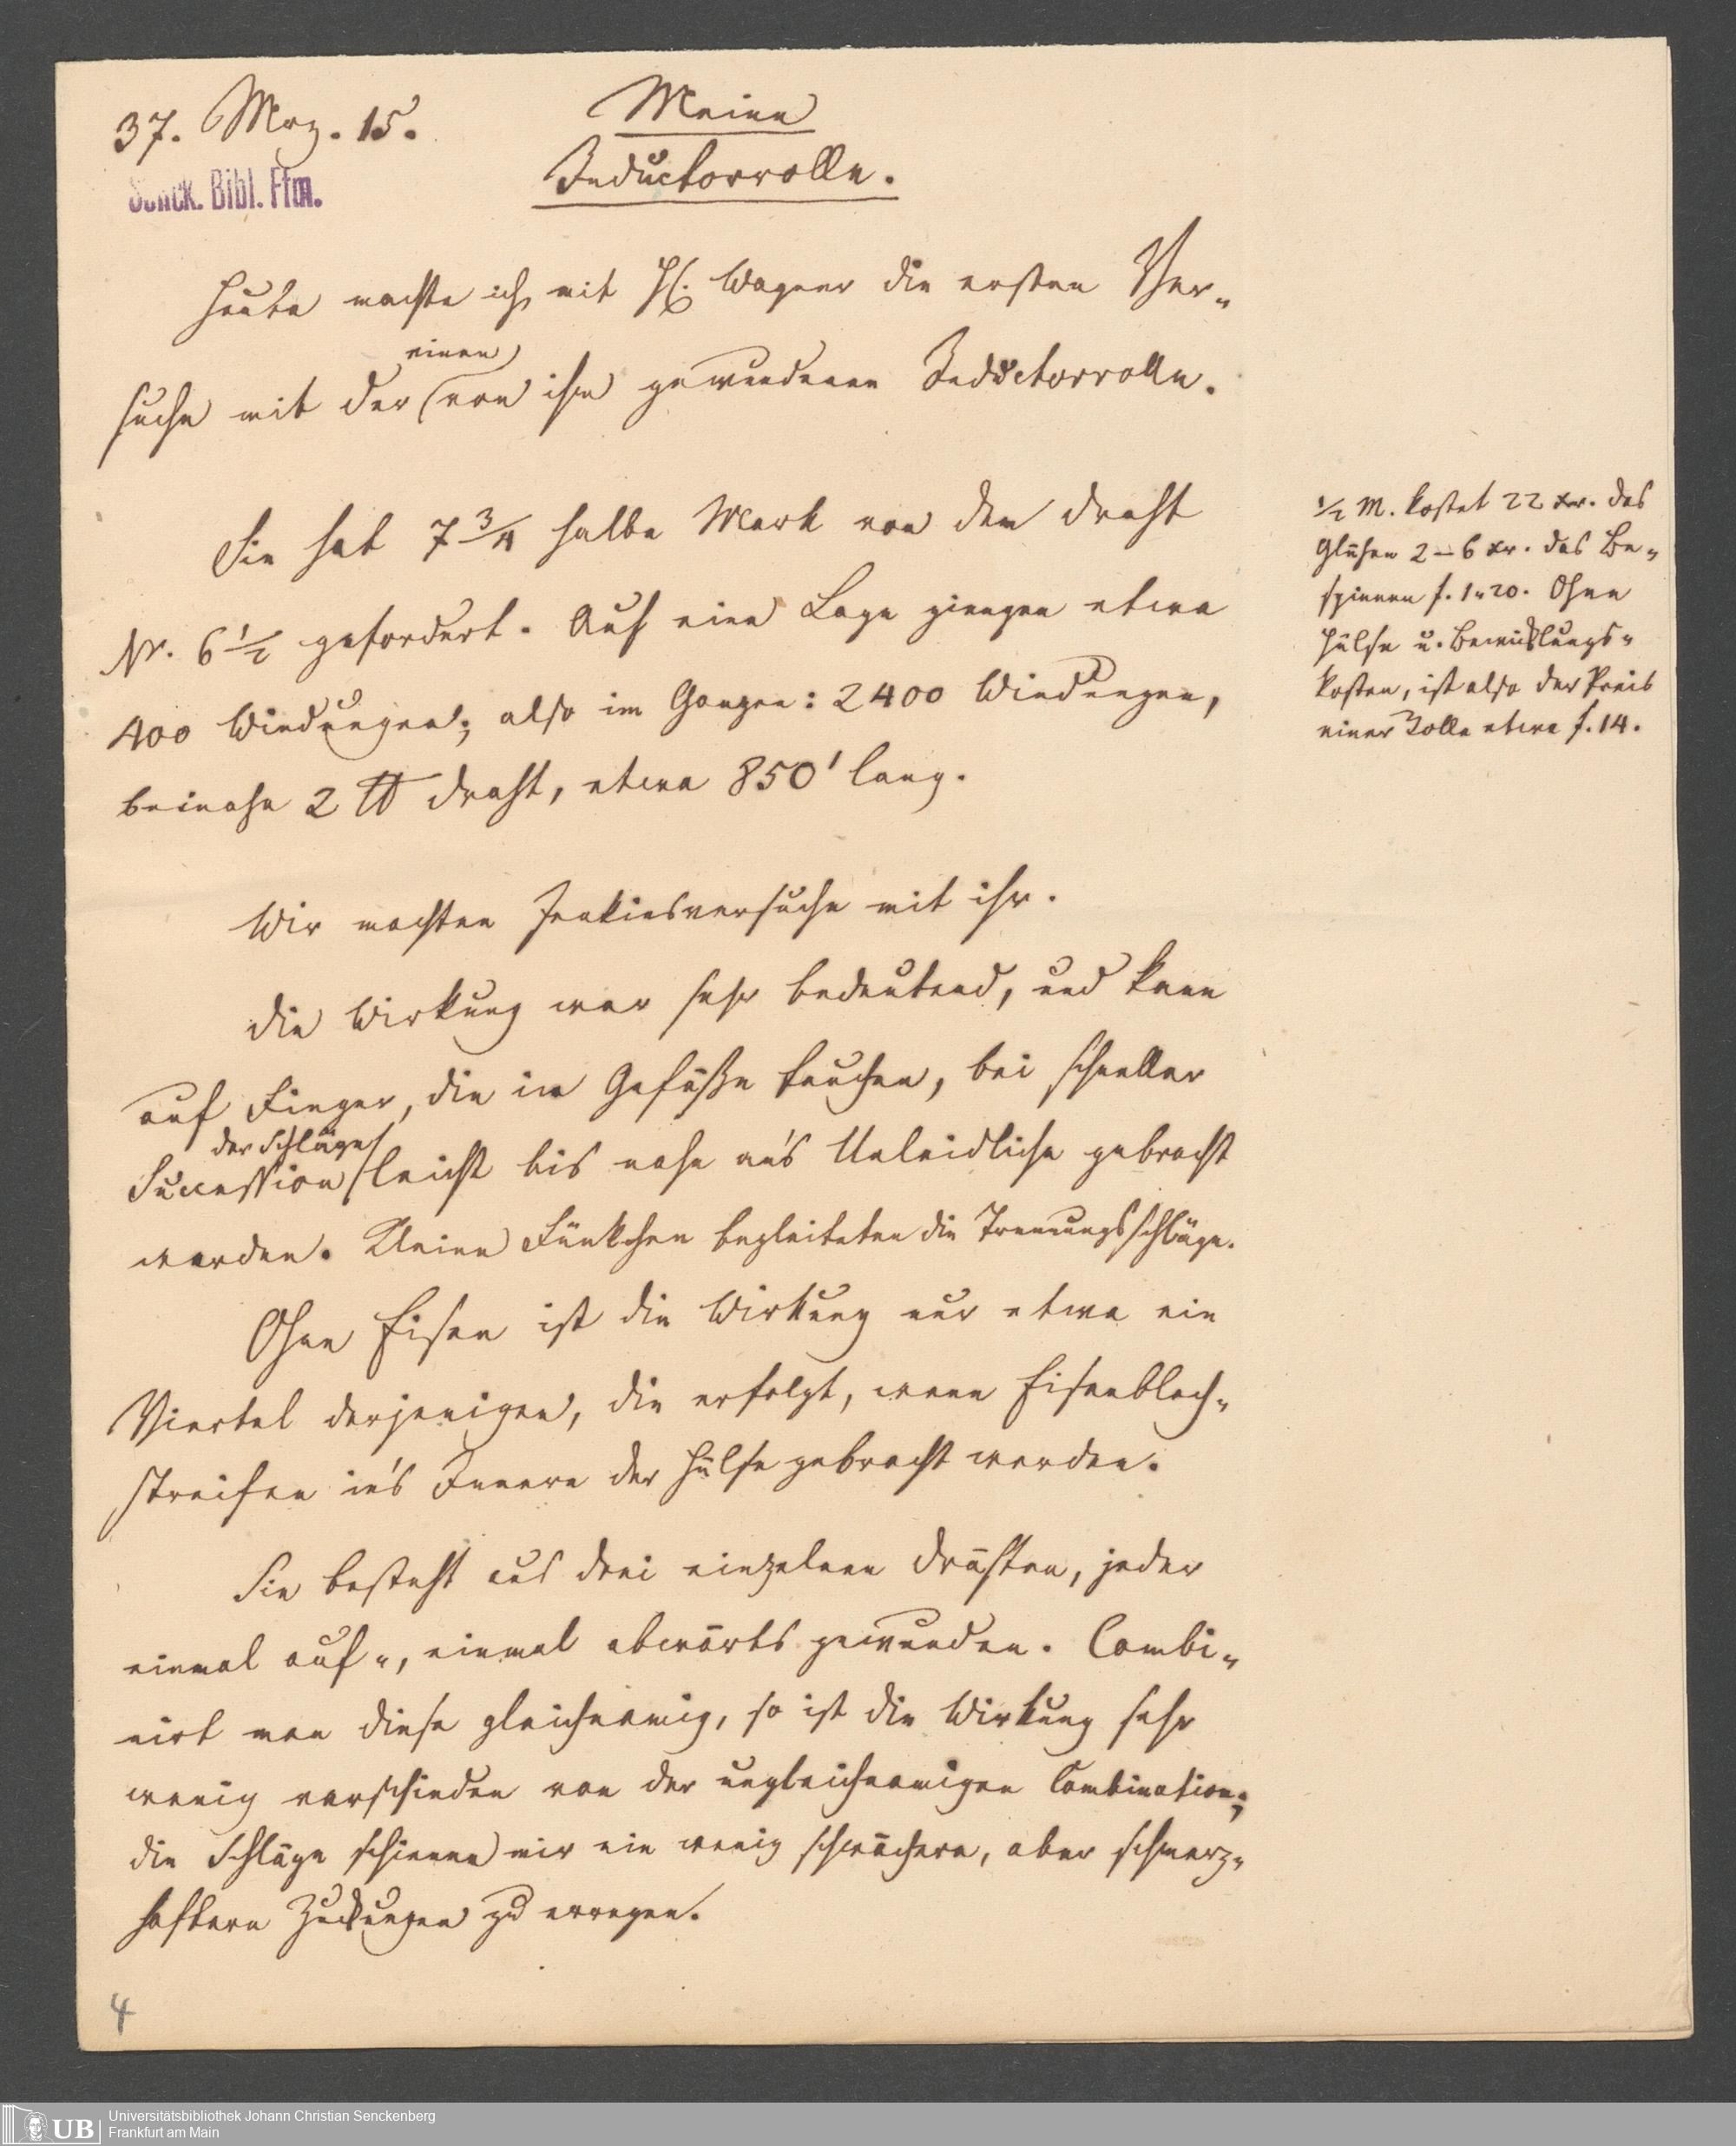 37. Mrz. 15.
Meine
Inductorrolle.
Senck. Bibl. Ffm.
Heute machte ich mit H. Wagner die ersten Ver-
einen
suche mit der von ihm gewundenen Inductorrolle.
Sie hat 7 3/4 halbe Mark von dem Draht
Nr. 6 1/2 gefordert. Auf eine Lage giengen etwa
400 Windungen; also im Ganzen: 2400 Windungen,
beinahe 2 ℔ Draht, etwa 850' lang.
½ M. kostet 22 xr. das
Glühen 2–6 xr. das Be-
spinnen f. 1„20. Ohne
Hülse u. Bewicklungs-
kosten, ist also der Preis
einer Rolle etwa f. 14.
Wir machten Jenkinsversuche mit ihr.
Die Wirkung war sehr bedeutend, und kann
auf Finger, die in Gefäße tauchen, bei schneller
der Schläge
Succession leicht bis nahe an's Unleidliche gebracht
werden. Kleine Fünkchen begleiteten die Trennungsschläge.
Ohne Eisen ist die Wirkung nur etwa ein
Viertel derjenigen, die erfolgt, wenn Eisenblech-
streifen in's Innere der Hülse gebracht werden.
Sie besteht aus drei einzelnen Drähten, jeder
einmal auf-, einmal abwärts gewunden. Combi-
nirt man diese gleichnamig, so ist die Wirkung sehr
wenig verschieden von der ungleichnamigen Combination;
die Schläge schienen mir ein wenig schwächere, aber schmerz-
haftere Zuckungen zu erregen.
4
UB
Universitätsbibliothek Johann Christian Senckenberg
Frankfurt am Main